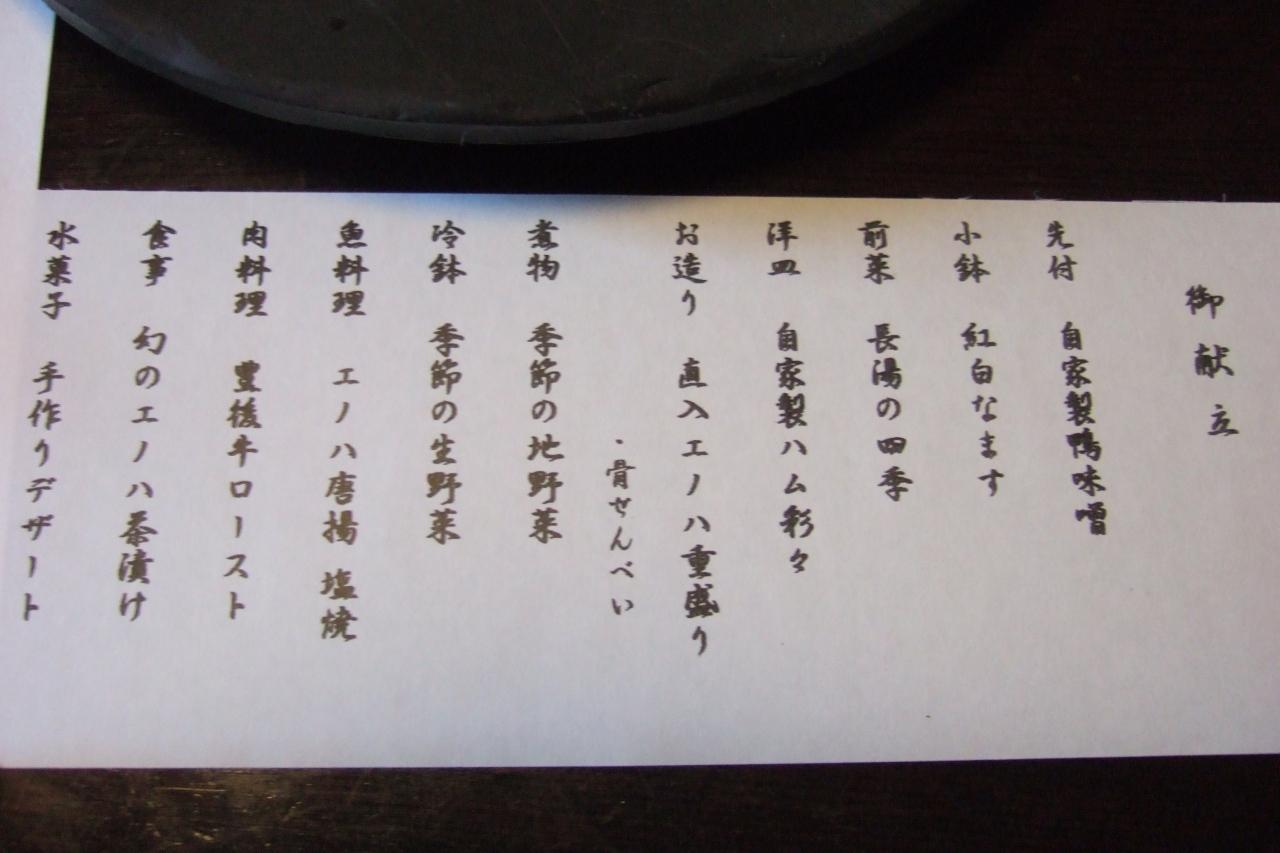 御献立
先付 自家製鴨味噌
小鉢 紅白なます
前菜 長湯の四季
洋皿 自家製ハム彩々
お造り 直入エノハ重盛り
・骨せんべい
煮物 季節の地野菜
冷鉢 季節の生野菜
魚料理 エノハ唐揚 塩焼
肉料理 豊後牛ロースト
食事 幻のエノハ茶漬け
水菓子 手作りデザート